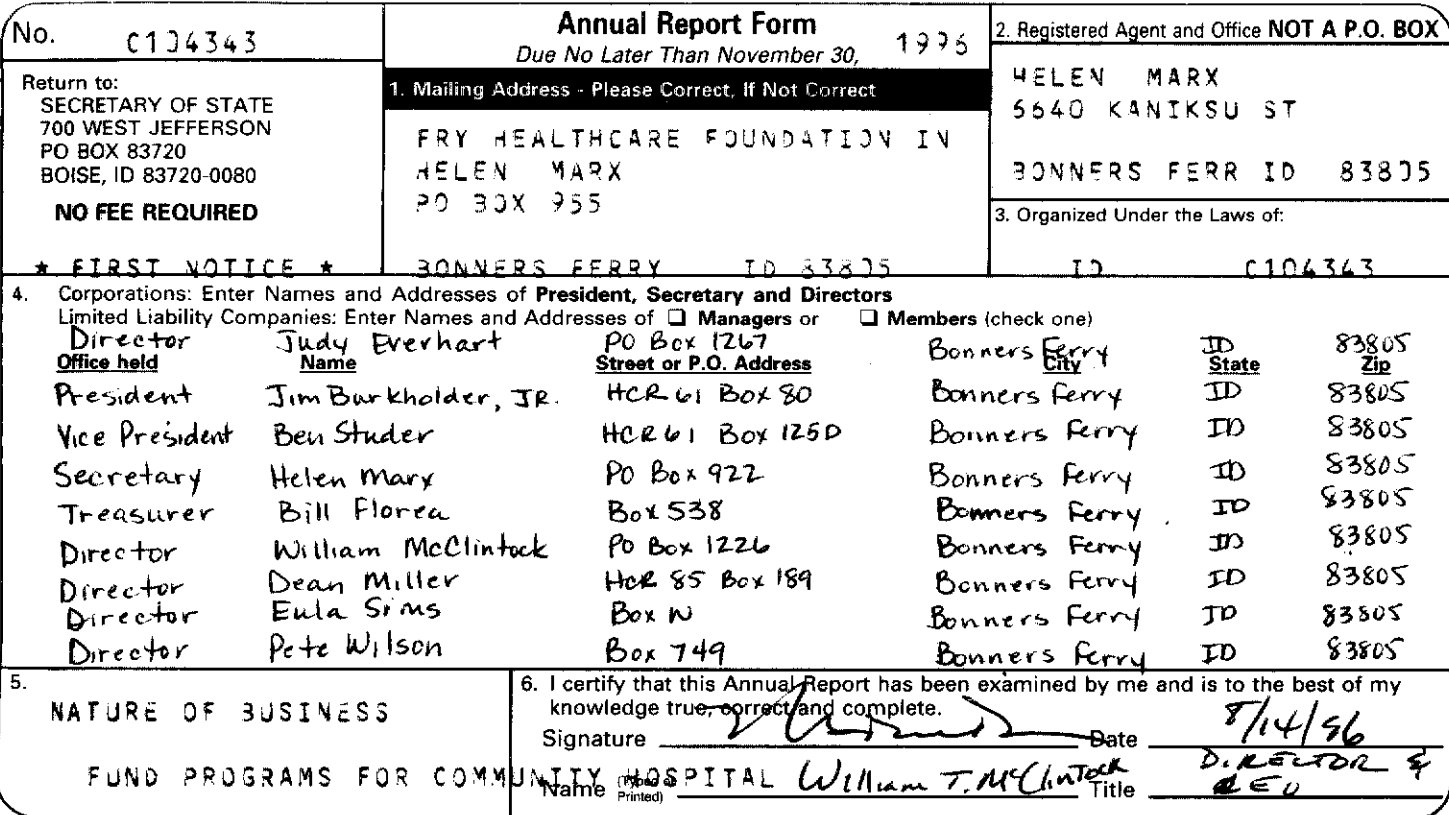 No. C104343
Annual Report Form
Due No Later Than November 30, 1996
Return to:
SECRETARY OF STATE
700 WEST JEFFERSON
PO BOX 83720
BOISE, ID 83720-0080
NO FEE REQUIRED
* FIRST NOTICE *
1. Mailing Address - Please Correct, If Not Correct
FRY HEALTHCARE FOUNDATION IN
HELEN MARX
PO BOX 955
BONNERS FERRY ID 83805
2. Registered Agent and Office NOT A P.O. BOX
HELEN MARX
6640 KANIKSU ST
BONNERS FERR ID 83805
3. Organized Under the Laws of:
ID C104343
4. Corporations: Enter Names and Addresses of President, Secretary and Directors
Limited Liability Companies: Enter Names and Addresses of ❑ Managers or ❑ Members (check one)
Director Judy Everhart PO Box 1267 Bonners Ferry ID 83805
Office held Name Street or P.O. Address City State Zip
President Jim Burkholder, JR. HCR 61 Box 80 Bonners Ferry ID 83805
Vice President Ben Studer HCR 61 Box 125D Bonners Ferry ID 83805
Secretary Helen Marx PO Box 922 Bonners Ferry ID 83805
Treasurer Bill Florea Box 538 Bonners Ferry ID 83805
Director William McClintock PO Box 1226 Bonners Ferry ID 83805
Director Dean Miller HCR 85 Box 189 Bonners Ferry ID 83805
Director Eula Sims Box N Bonners Ferry ID 83805
Director Pete Wilson Box 749 Bonners Ferry ID 83805
5.
NATURE OF BUSINESS
FUND PROGRAMS FOR COMMUNITY HOSPITAL
6. I certify that this Annual Report has been examined by me and is to the best of my
knowledge true, correct and complete.
Signature Date 8/14/96
Name (Typed or Printed) William T. McClintock Title DIRECTOR &